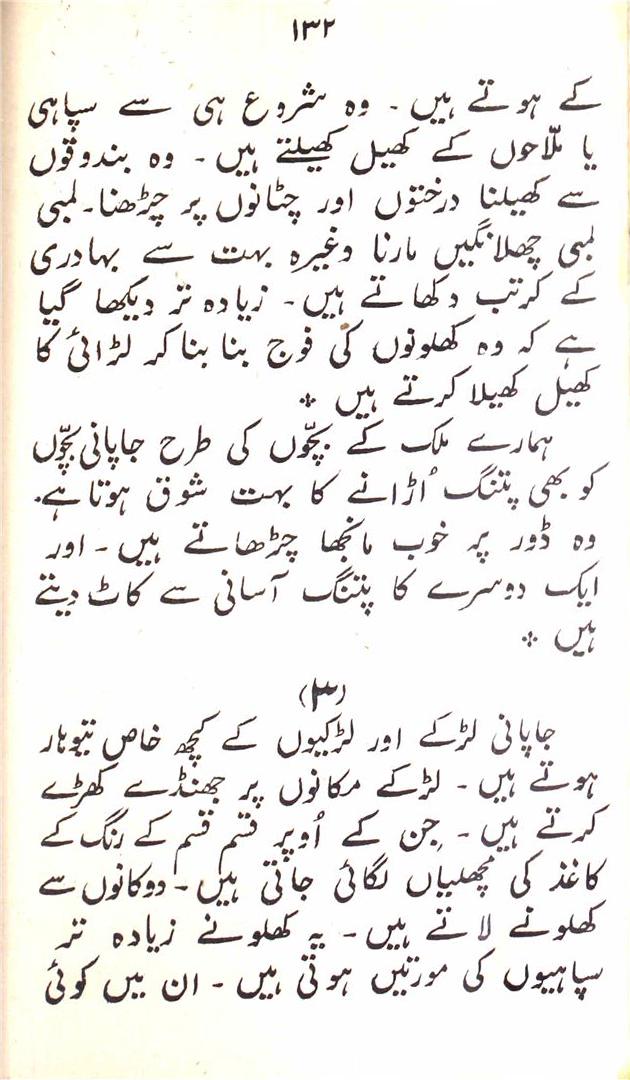 ۱۳۲
کے ہوتے ہیں ۔ وہ شروع ہی سے سپاہی
یا ملّاحوں کے کھیل کھیلتے ہیں ۔ وہ بندوقوں
سے کھیلنا درختوں اور چٹانوں پر چڑھنا ۔ لمبی
لمبی چھلانگیں مارنا وغیرہ بہت سے بہادری
کے کرتب دکھاتے ہیں ۔ زیادہ تر دیکھا گیا
ہے کہ وہ کھلونوں کی فوج بنا بنا کر لڑائی کا
کھیل کھیلا کرتے ہیں ⁘
ہمارے ملک کے بچّوں کی طرح جاپانی بچّوں
کو بھی پتنگ اُڑانے کا بہت شوق ہوتا ہے۔
وہ ڈور پر خوب مانجھا چڑھاتے ہیں ۔ اور
ایک دوسرے کا پتنگ آسانی سے کاٹ دیتے
ہیں ⁘
(۳)
جاپانی لڑکے اور لڑکیوں کے کچھ خاص تیوہار
ہوتے ہیں ۔ لڑکے مکانوں پر جھنڈے کھڑے
کرتے ہیں ۔ جن کے اُوپر قسم قسم کے رنگ کے
کاغذ کی مچھلیاں لگائی جاتی ہیں ۔ دوکانوں سے
کھلونے لاتے ہیں ۔ یہ کھلونے زیادہ تر
سپاہیوں کی مورتیں ہوتی ہیں ۔ ان میں کوئی